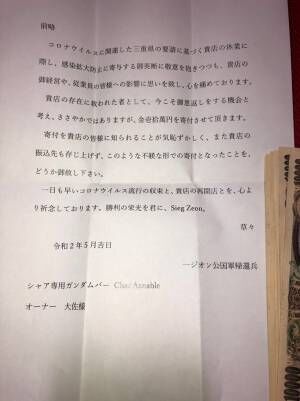 前略
コロナウイルスに関連した三重県の要請に基づく貴店の休業に
際し、感染拡大防止に寄与する御英断に敬意を抱きつつも、貴店の
御経営や、従業員の皆様への影響に思いを致し、心を痛めております。
貴店の存在に救われた者として、今こそ御恩返しをする機会と
考え、ささやかではありますが、金壱拾萬円を寄付させて頂きます。
寄付を貴店の皆様に知られることが気恥ずかしく、また貴店の
振込先も存じ上げず、このような不躾な形での寄付となったことを、
どうか御赦し下さい。
一日も早いコロナウイルス流行の収束と、貴店の再開店とを、心よ
り祈念しております。勝利の栄光を君に、Sieg Zeon。
草々
令和2年5月吉日
一ジオン公国軍帰還兵
シャア専用ガンダムバー Char Aznable
オーナー 大佐様
10000